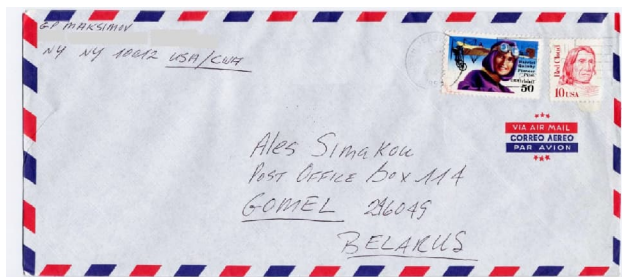 GP MAKSIMOV
NY NY 10012 USA/США
Harriet
Quimby
Pioneer
Pilot
50
Red Cloud
10 USA
VIA AIR MAIL
CORREO AEREO
PAR AVION
Ales Simakou
Post Office Box 114
GOMEL 246049
BELARUS